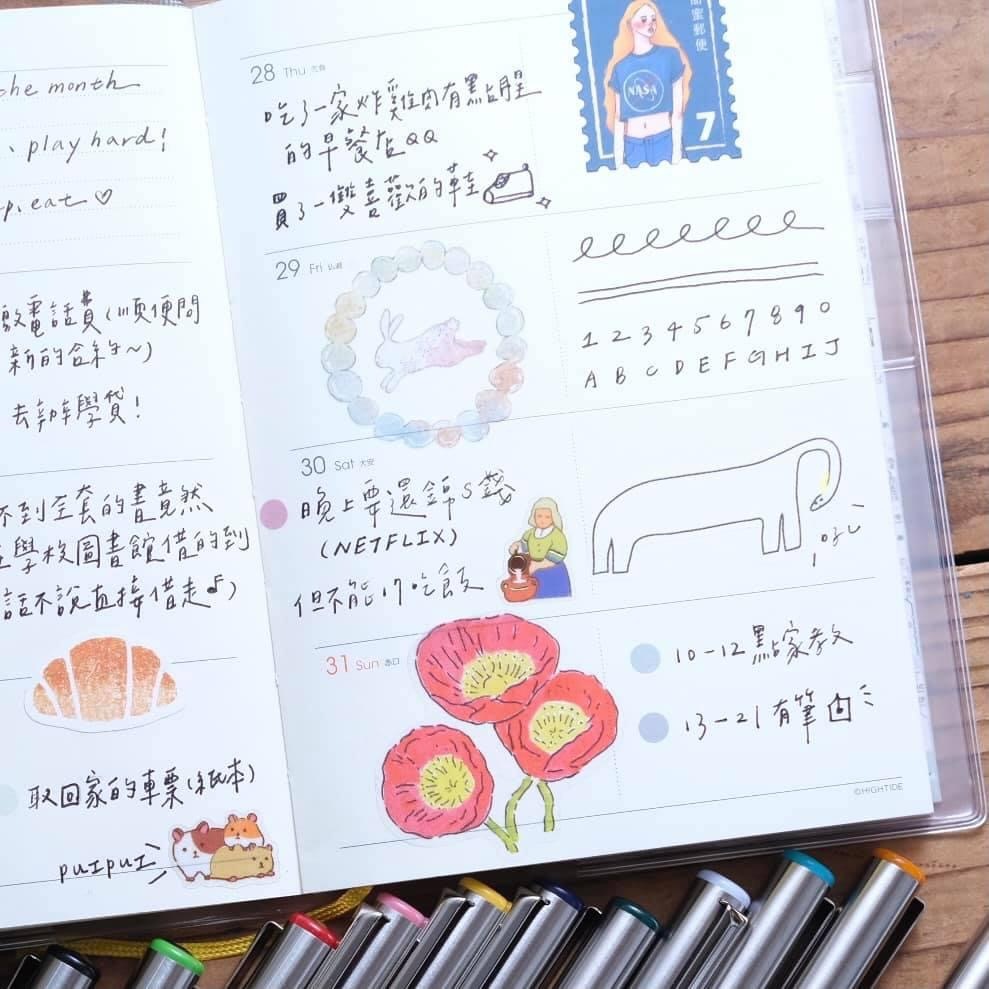 the month
、play hard!
eat ♡
繳電話費(順便問
新的合約~)
去辦學貸!
不到全套的書竟然
學校圖書館借的到
話不說直接借走♪)
取回家的車票(紙本)
PUIPUI
28 Thu 先負
吃了一家炸雞肉有點腥
的早餐店QQ
買了一雙喜歡的鞋
甜蜜郵便
NASA
7
29 Fri 仏滅
1 2 3 4 5 6 7 8 9 0
A B C D E F G H I J
30 Sat 大安
晚上要還錦S錢
(NETFLIX)
但不能吃飯
31 Sun 赤口
10-12點家教
13-21有筆肉
©HIGHTIDE